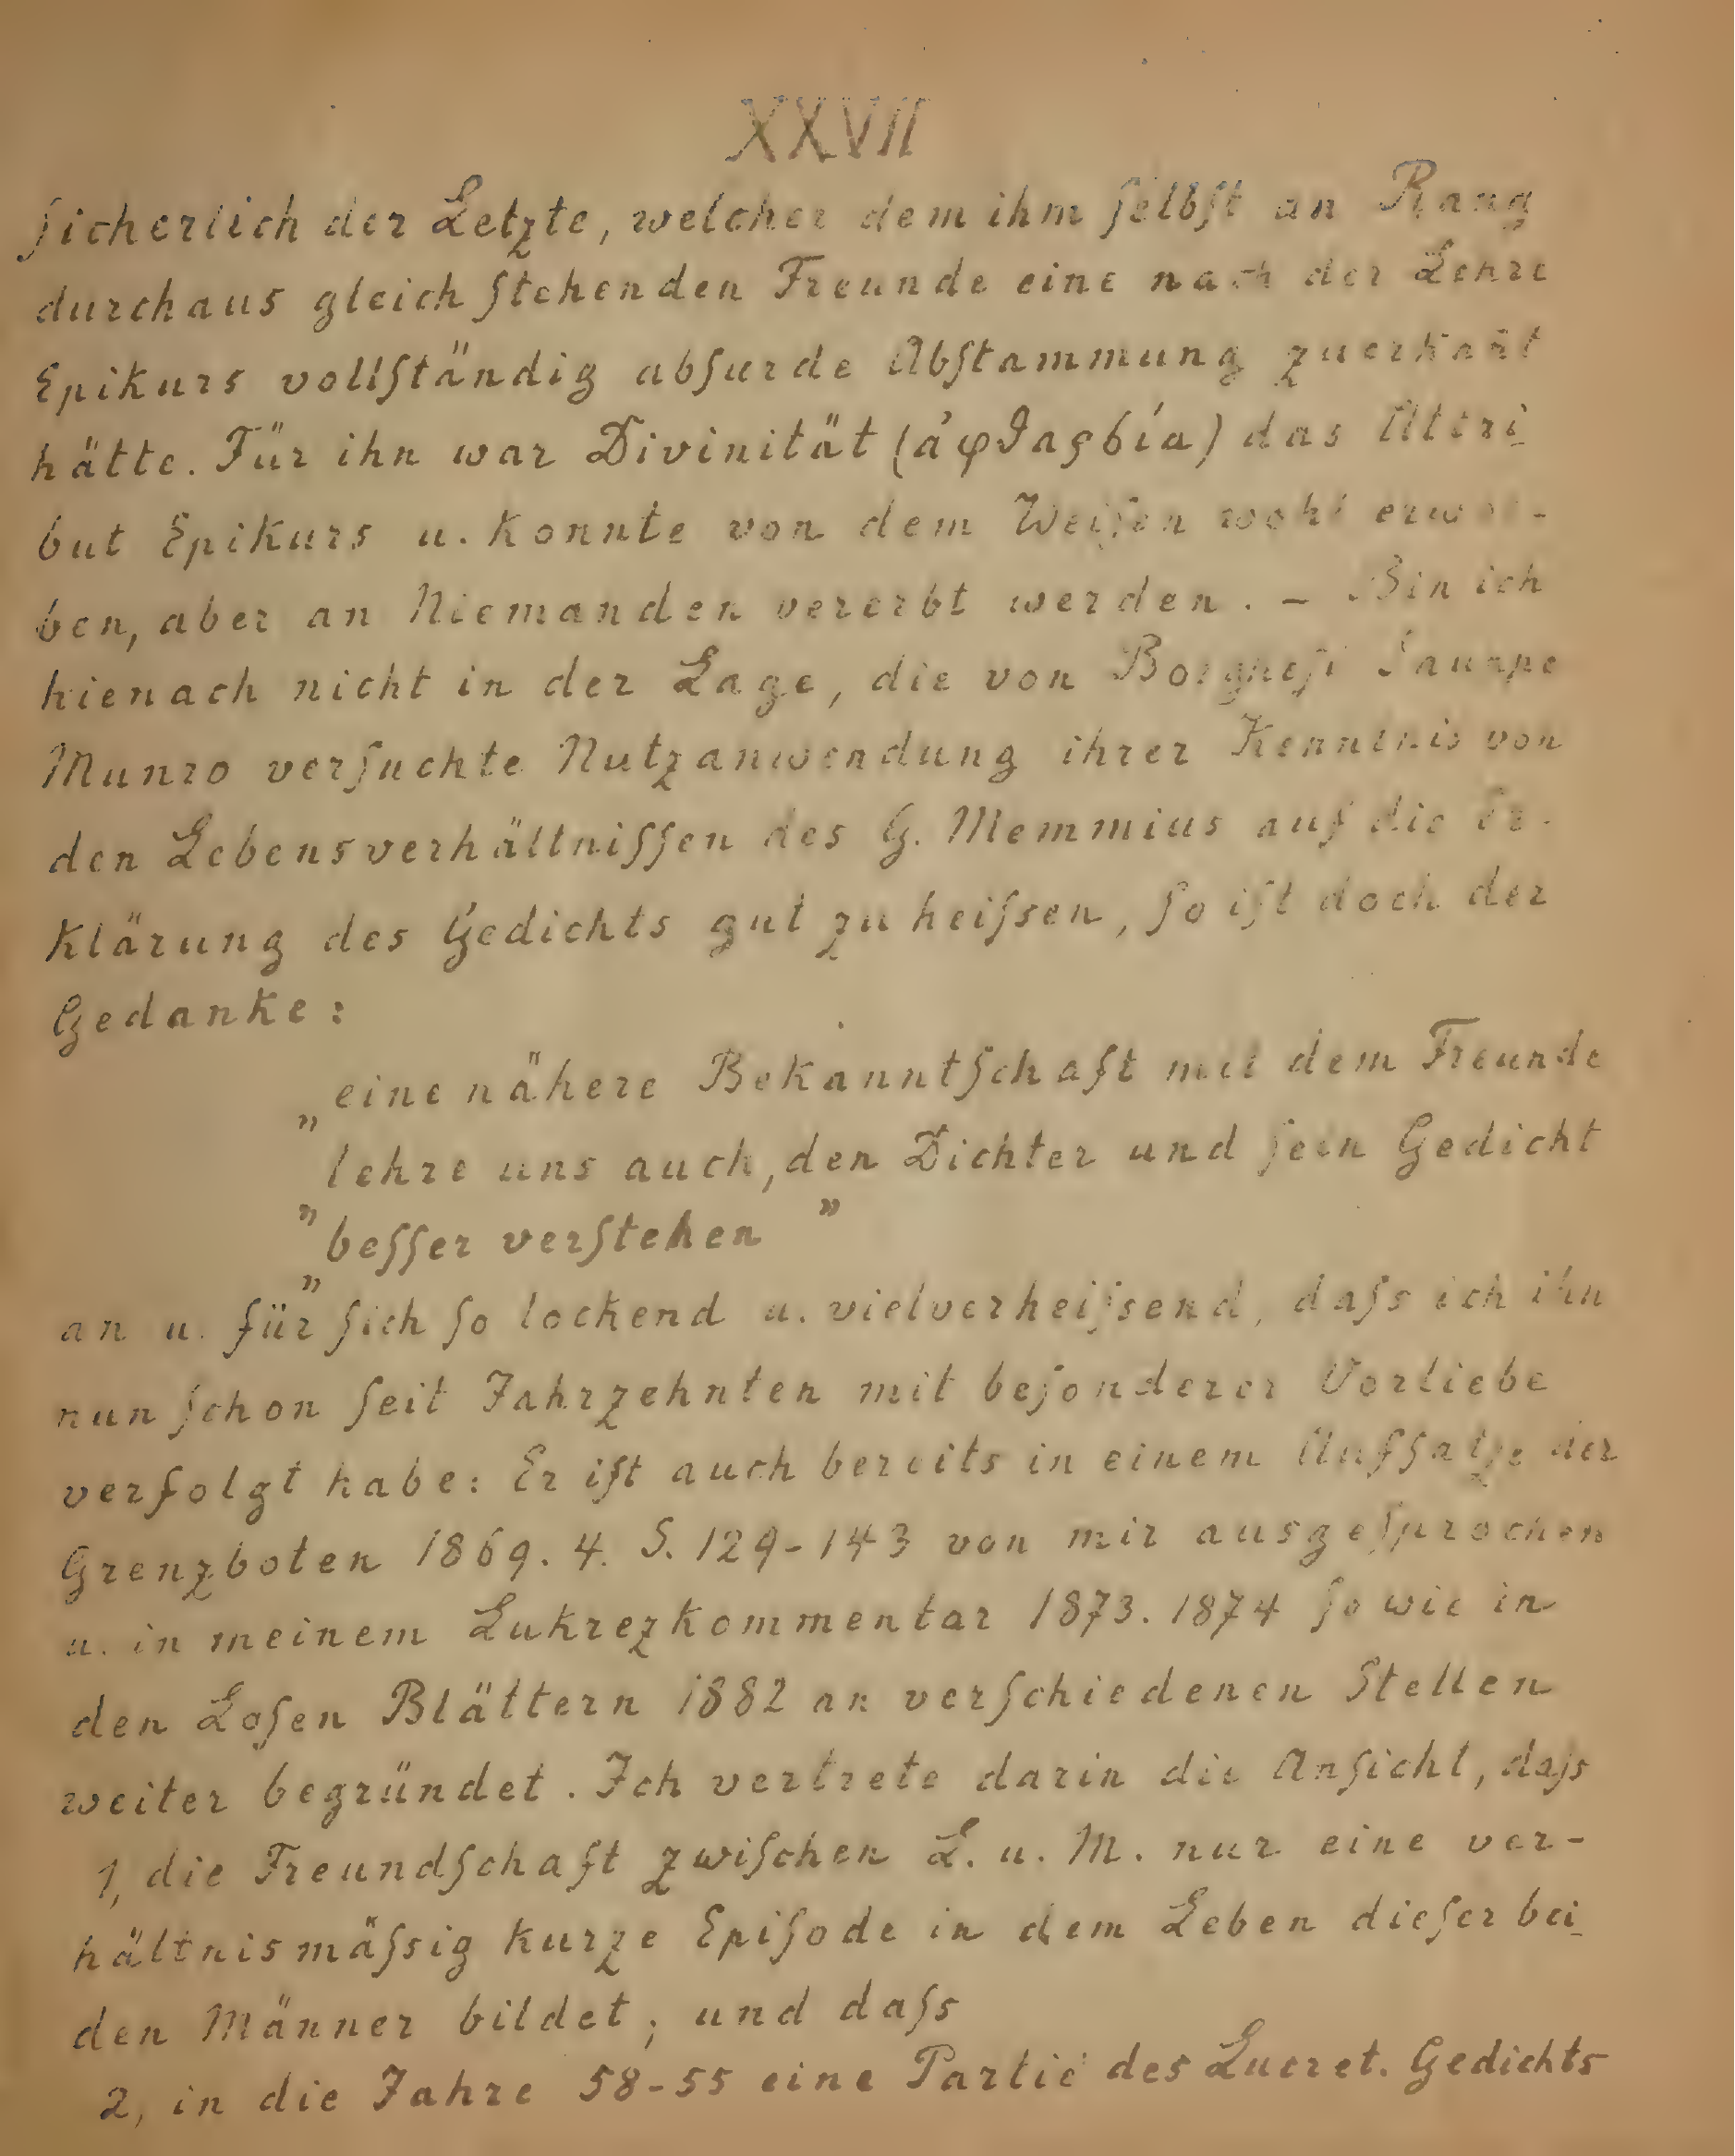 XXVII
ſicherlich der Letzte, welcher dem ihm ſelbſt an Rang
durchaus gleich ſtehenden Freunde eine nach der Lehre
Epikurs vollſtändig abſurde Abſtammung zuerkan̄t
hätte. Für ihn war Divinität (ἀφθαρσία) das Attri-
but Epikurs u. konnte von dem Weiſen wohl erwor-
ben, aber an Niemanden vererbt werden. – Bin ich
hienach nicht in der Lage, die von Borgheſi Sauppe
Munro verſuchte Nutzanwendung ihrer Kenntnis von
den Lebensverhältniſſen des G. Memmius auf die Er-
klärung des Gedichts gut zu heiſsen, ſo iſt doch der
Gedanke:
„eine nähere Bekanntſchaft mit dem Freunde
„lehre uns auch, den Dichter und ſein Gedicht
„beſſer verſtehen”
an u. für ſich ſo lockend u. vielverheiſsend, daſs ich ihn
nun ſchon ſeit Jahrzehnten mit beſonderer Vorliebe
verfolgt habe: Er iſt auch bereits in einem Aufſatze der
Grenzboten 1869. 4. S. 129-143 von mir ausgeſprochen
u. in meinem Lukrezkommentar 1873. 1874 ſo wie in
den Loſen Blättern 1882 an verſchiedenen Stellen
weiter begründet. Ich vertrete darin die Anſicht, daſs
1, die Freundſchaft zwiſchen L. u. M. nur eine ver-
hältnismäſsig kurze Epiſode in dem Leben dieſer bei-
den Männer bildet; und daſs
2, in die Jahre 58-55 eine Partie des Lucret. Gedichts